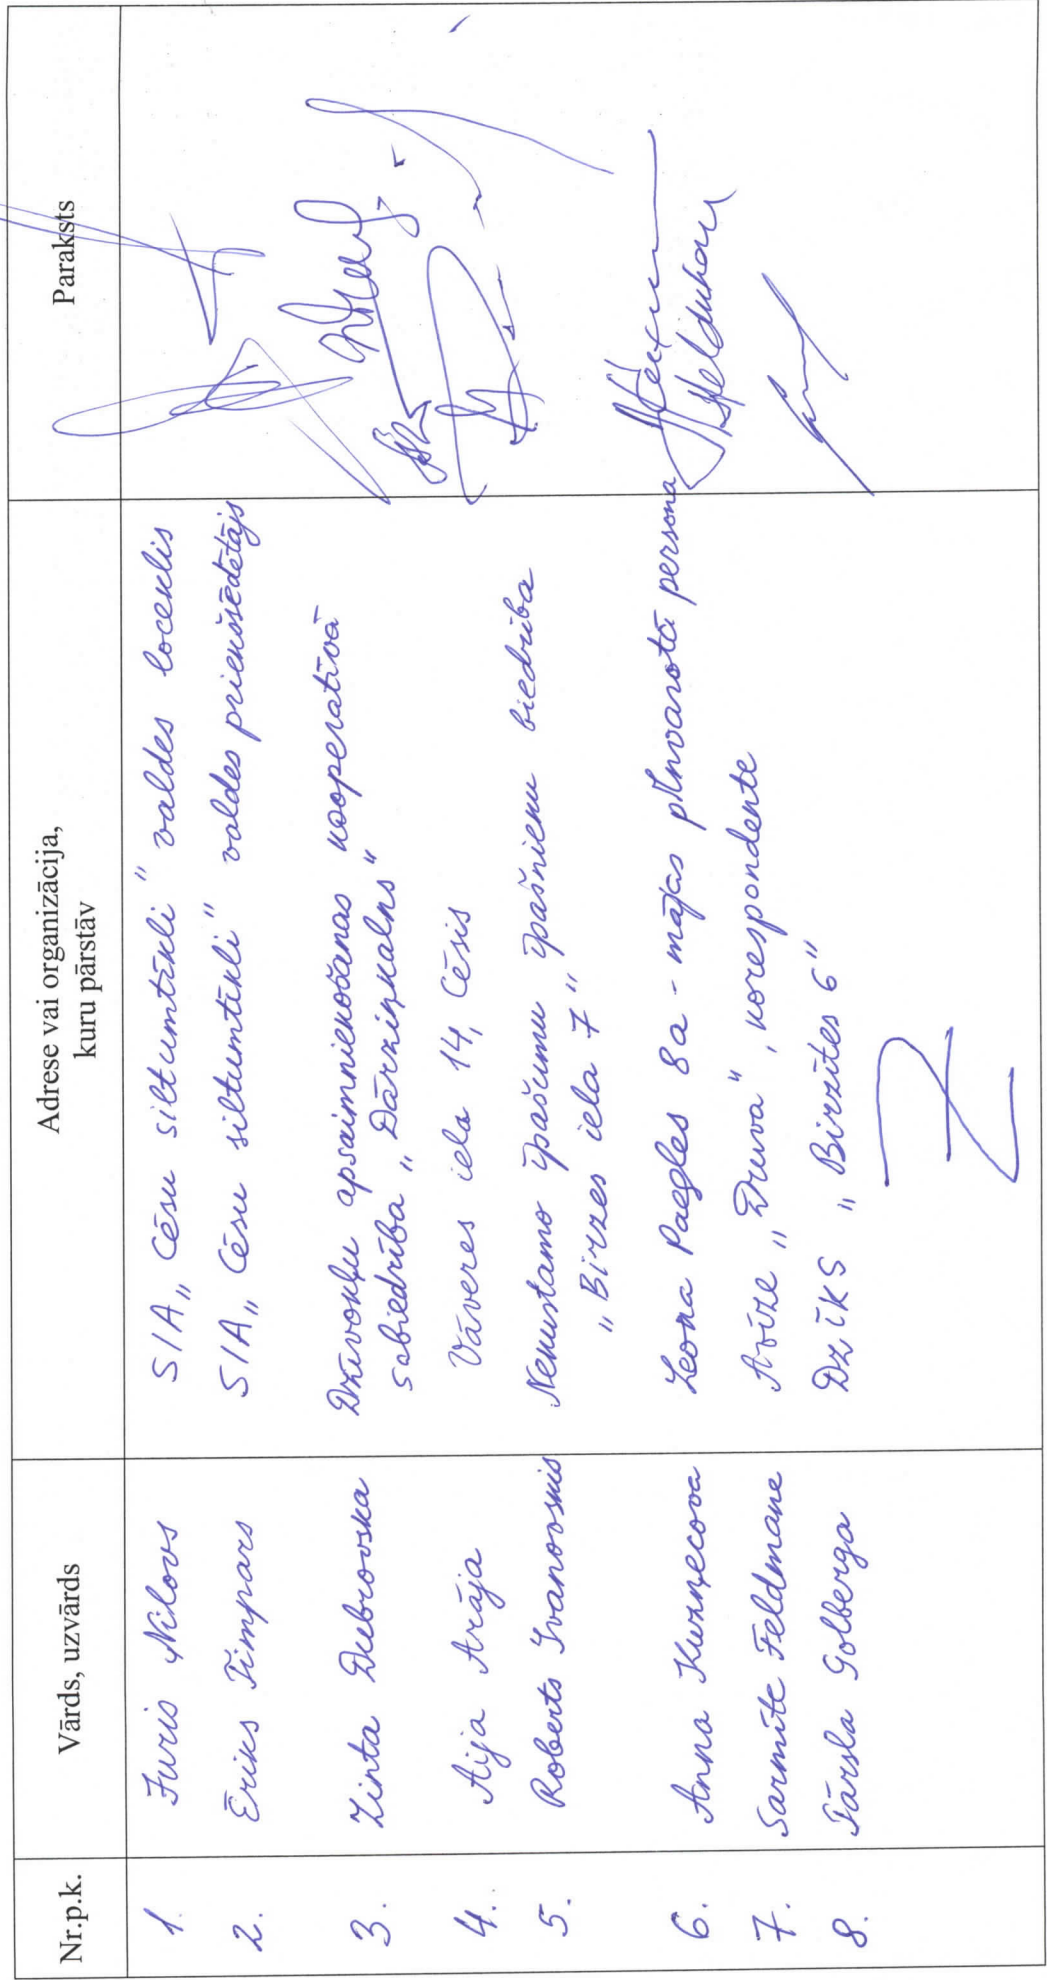 Nr.p.k. Vārds, uzvārds Adrese vai organizācija, kuru pārstāv Paraksts
1. Juris Nilovs SIA „Cēsu siltumtīkli" valdes loceklis
2. Ēriks Timpars SIA „Cēsu siltumtīkli" valdes priekšsēdētājs
3. Zinta Dubrovska Dzīvokļu apsaimniekošanas kooperatīvā
sabiedrība „Dārziņkalns"
4. Aija Arāja Vāveres iela 14, Cēsis
5. Roberts Ivanovskis Nekustamo īpašumu īpašnieku biedrība
„Birzes iela 7"
6. Anna Kuzņecova Leona Paegles 8a - mājas pilnvarotā persona
7. Sarmīte Feldmane Avīze „Druva", korespondente
8. Pārsla Golberga DzĪKS „Birzītes 6"